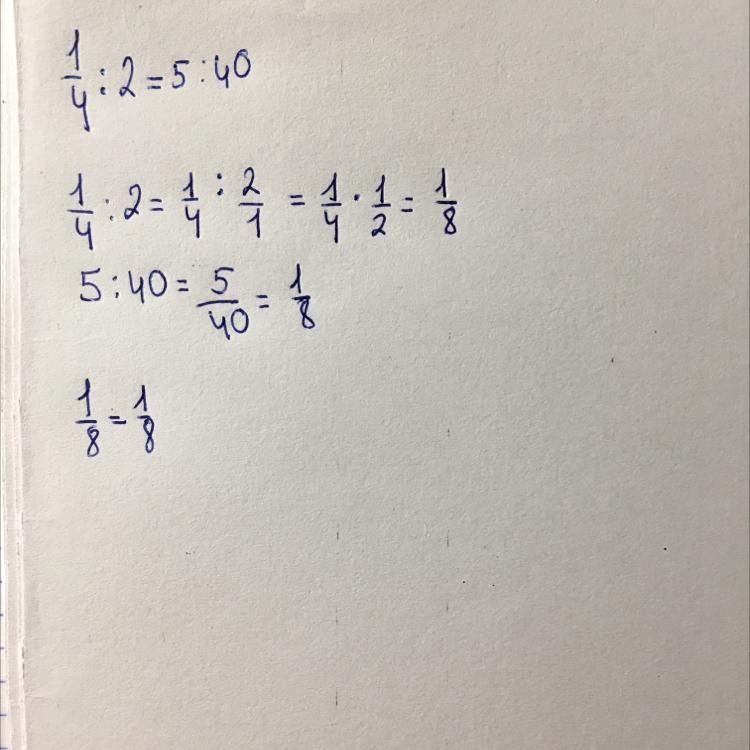 1/4 : 2 = 5 : 40
1/4 : 2 = 1/4 : 2/1 = 1/4 · 1/2 = 1/8
5 : 40 = 5/40 = 1/8
1/8 = 1/8